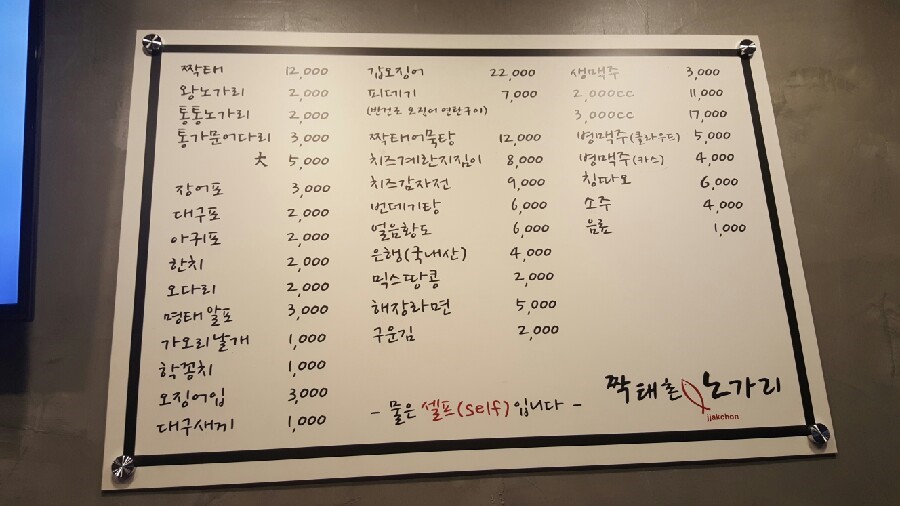 짝태 12,000
왕노가리 2,000
통통노가리 2,000
통가문어다리 3,000
大 5,000
장어포 3,000
대구포 2,000
아귀포 2,000
한치 2,000
오다리 2,000
명태알포 3,000
가오리날개 1,000
학꽁치 1,000
오징어입 3,000
대구새끼 1,000
갑오징어 22,000
피데기 7,000
(반건조 오징어 연탄구이)
짝태어묵탕 12,000
치즈계란지짐이 8,000
치즈감자전 9,000
번데기탕 6,000
얼음황도 6,000
은행(국내산) 4,000
믹스땅콩 2,000
해장라면 5,000
구운김 2,000
생맥주 3,000
2,000cc 11,000
3,000cc 17,000
병맥주(클라우드) 5,000
병맥주(카스) 4,000
칭따오 6,000
소주 4,000
음료 1,000
- 물은 셀프(self)입니다 -
짝태촌 노가리
jjakchon